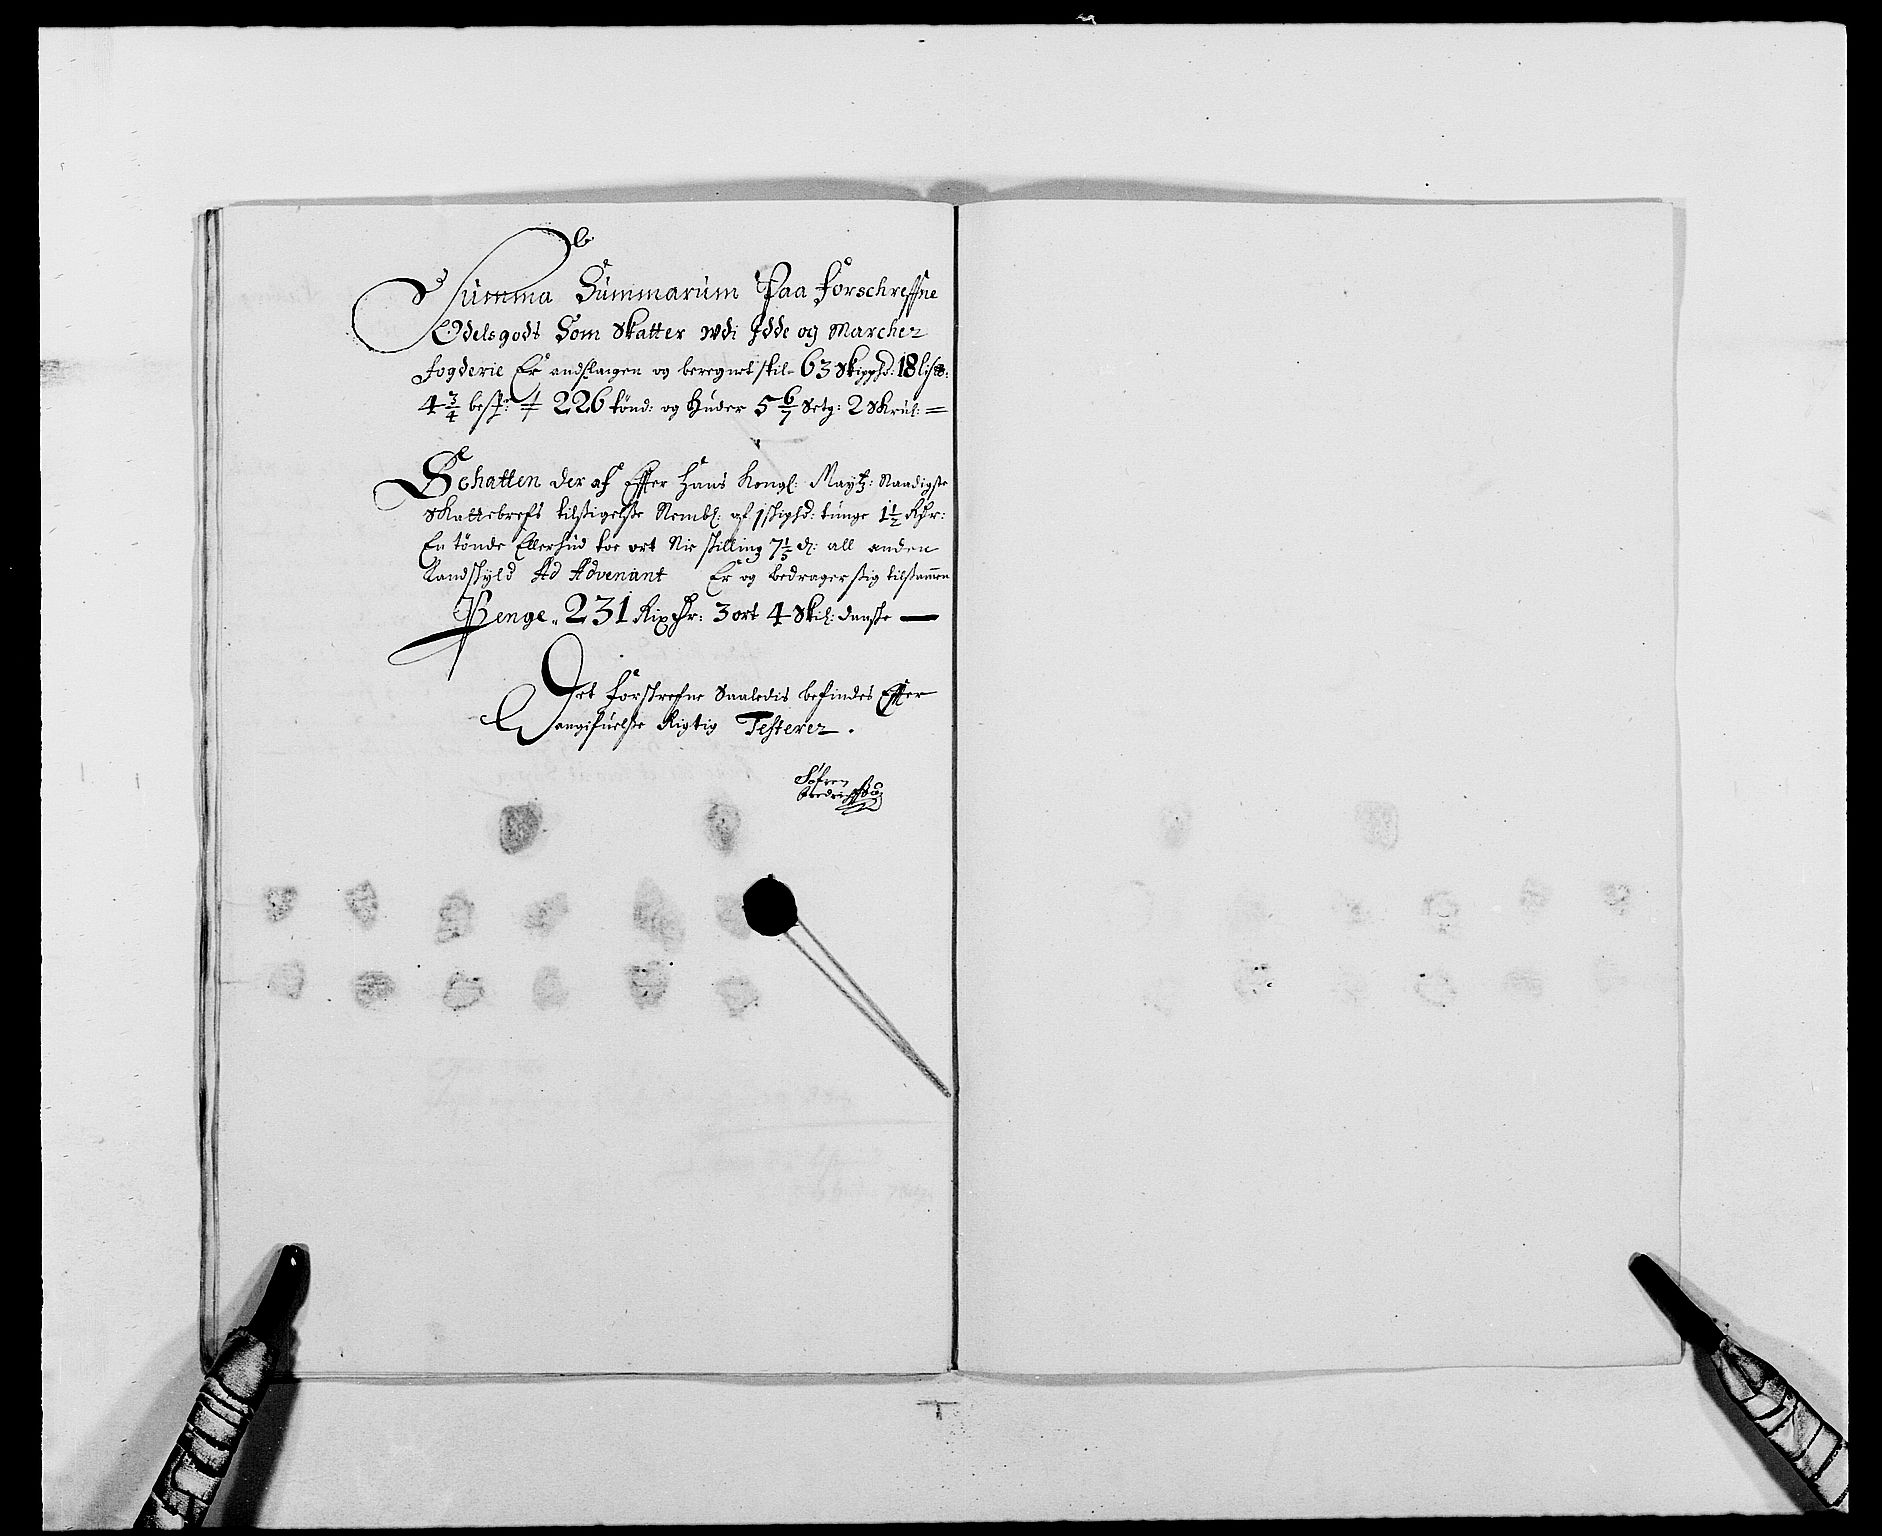 Summa Summarum Paa forschreffne
Odelsgods Som Skatter udi Idde og Marcher
fogderie Er andslaugen og beregnet till 63 Skippd: 18 lis℔:
4 3/4 226 tönd: og Huder 5 6/7 Setg: 2 Skrul: =
Schatten der af Effter Hans Kongl: Maytz: Naadigste
Skattebrefs tilsigelse Nembl: af 1 skippd: tunge 1 1/2 Rdr:
En tönde Eller hud toe ort Nie skilling 7 1/5 d: all anden
Landskyld Ad Advenant Er og bedrager sig tilsammen
Penge 231 Rixdr: 3 ort 4 Skil: danske —
Det forskrefne Saaledis befindes Effter
angifuelse Rigtig Testerer.
Söfren